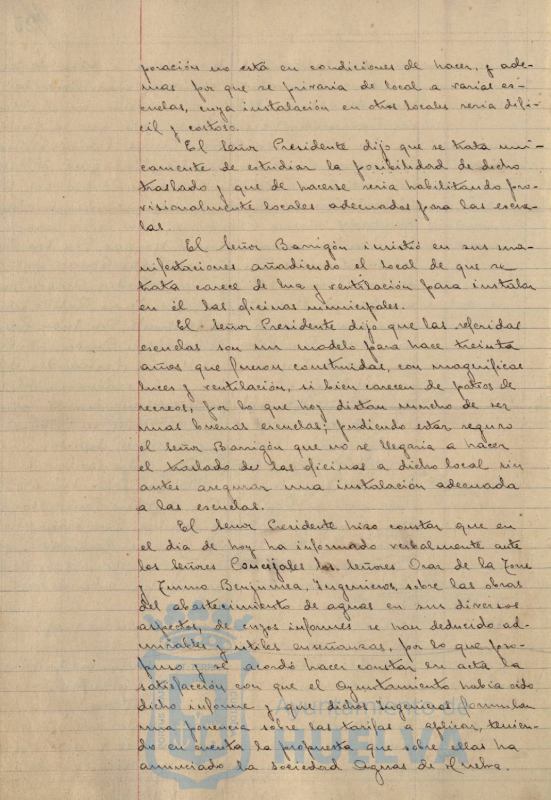 poración no está en condiciones de hacer, y ade-
mas por que se privaria de local a varias es-
cuelas, cuya instalación en otros locales seria difi-
cil y costoso.
El Señor Presidente dijo que se trata uni-
camente de estudiar la posibilidad de dicho
traslado y que de hacerse seria habilitando pro-
visionalmente locales adecuados para las escue-
las.
El Señor Barrigón insistió en sus ma-
nifestaciones añadiendo el local de que se
trata carece de luz y ventilación para instalar
en él las oficinas municipales.
El Señor Presidente dijo que las referidas
escuelas son un modelo para hace treinta
años que fueron construidas, con magnificas
luces y ventilación, si bien carecen de patios de
recreos, por lo que hoy distan mucho de ser
unas buenas escuelas; pudiendo estar seguro
el Señor Barrigón que no se llegaria a hacer
el traslado de las oficinas a dicho local sin
antes asegurar una instalación adecuada
a las escuelas.
El Señor Presidente hizo constar que en
el dia de hoy ha informado verbalmente ante
los Señores Concejales los Señores de la Torre
y Benjumea, Ingenieros, sobre las obras
del abastecimiento de aguas en sus diversos
aspectos, de cuyos informes se han deducido ad-
mirables y utiles enseñanzas, por lo que pro-
puso y se acordó hacer constar en acta la
satisfacción con que el Ayuntamiento habia oido
dicho informe y que dichos Ingenieros formulen
una ponencia sobre las tarifas a aplicar, tenien-
do en cuenta la propuesta que sobre ellas ha
anunciado la Sociedad Aguas de Huelva.
Ayuntamiento de
HUELVA